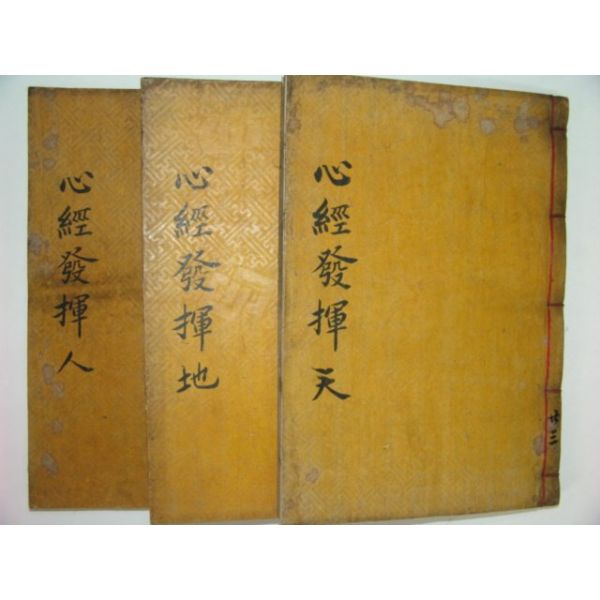 心經發揮天
共三
心經發揮地
心經發揮人